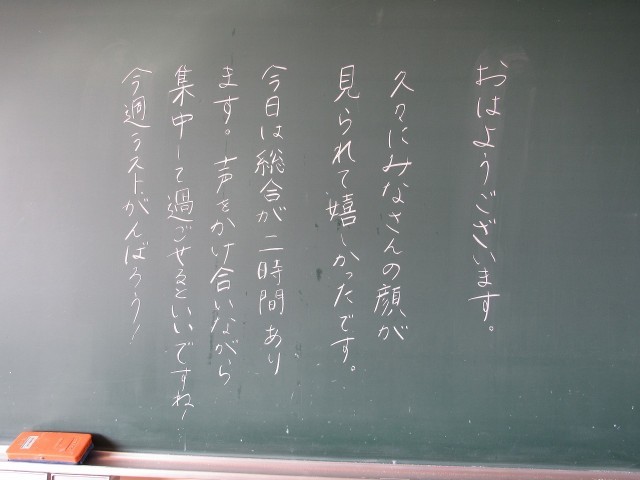 おはようございます。
久々にみなさんの顔が
見られて嬉しかったです。
今日は総合が二時間あり
ます。声をかけ合いながら
集中して過ごせるといいですね！
今週ラストがんばろう！